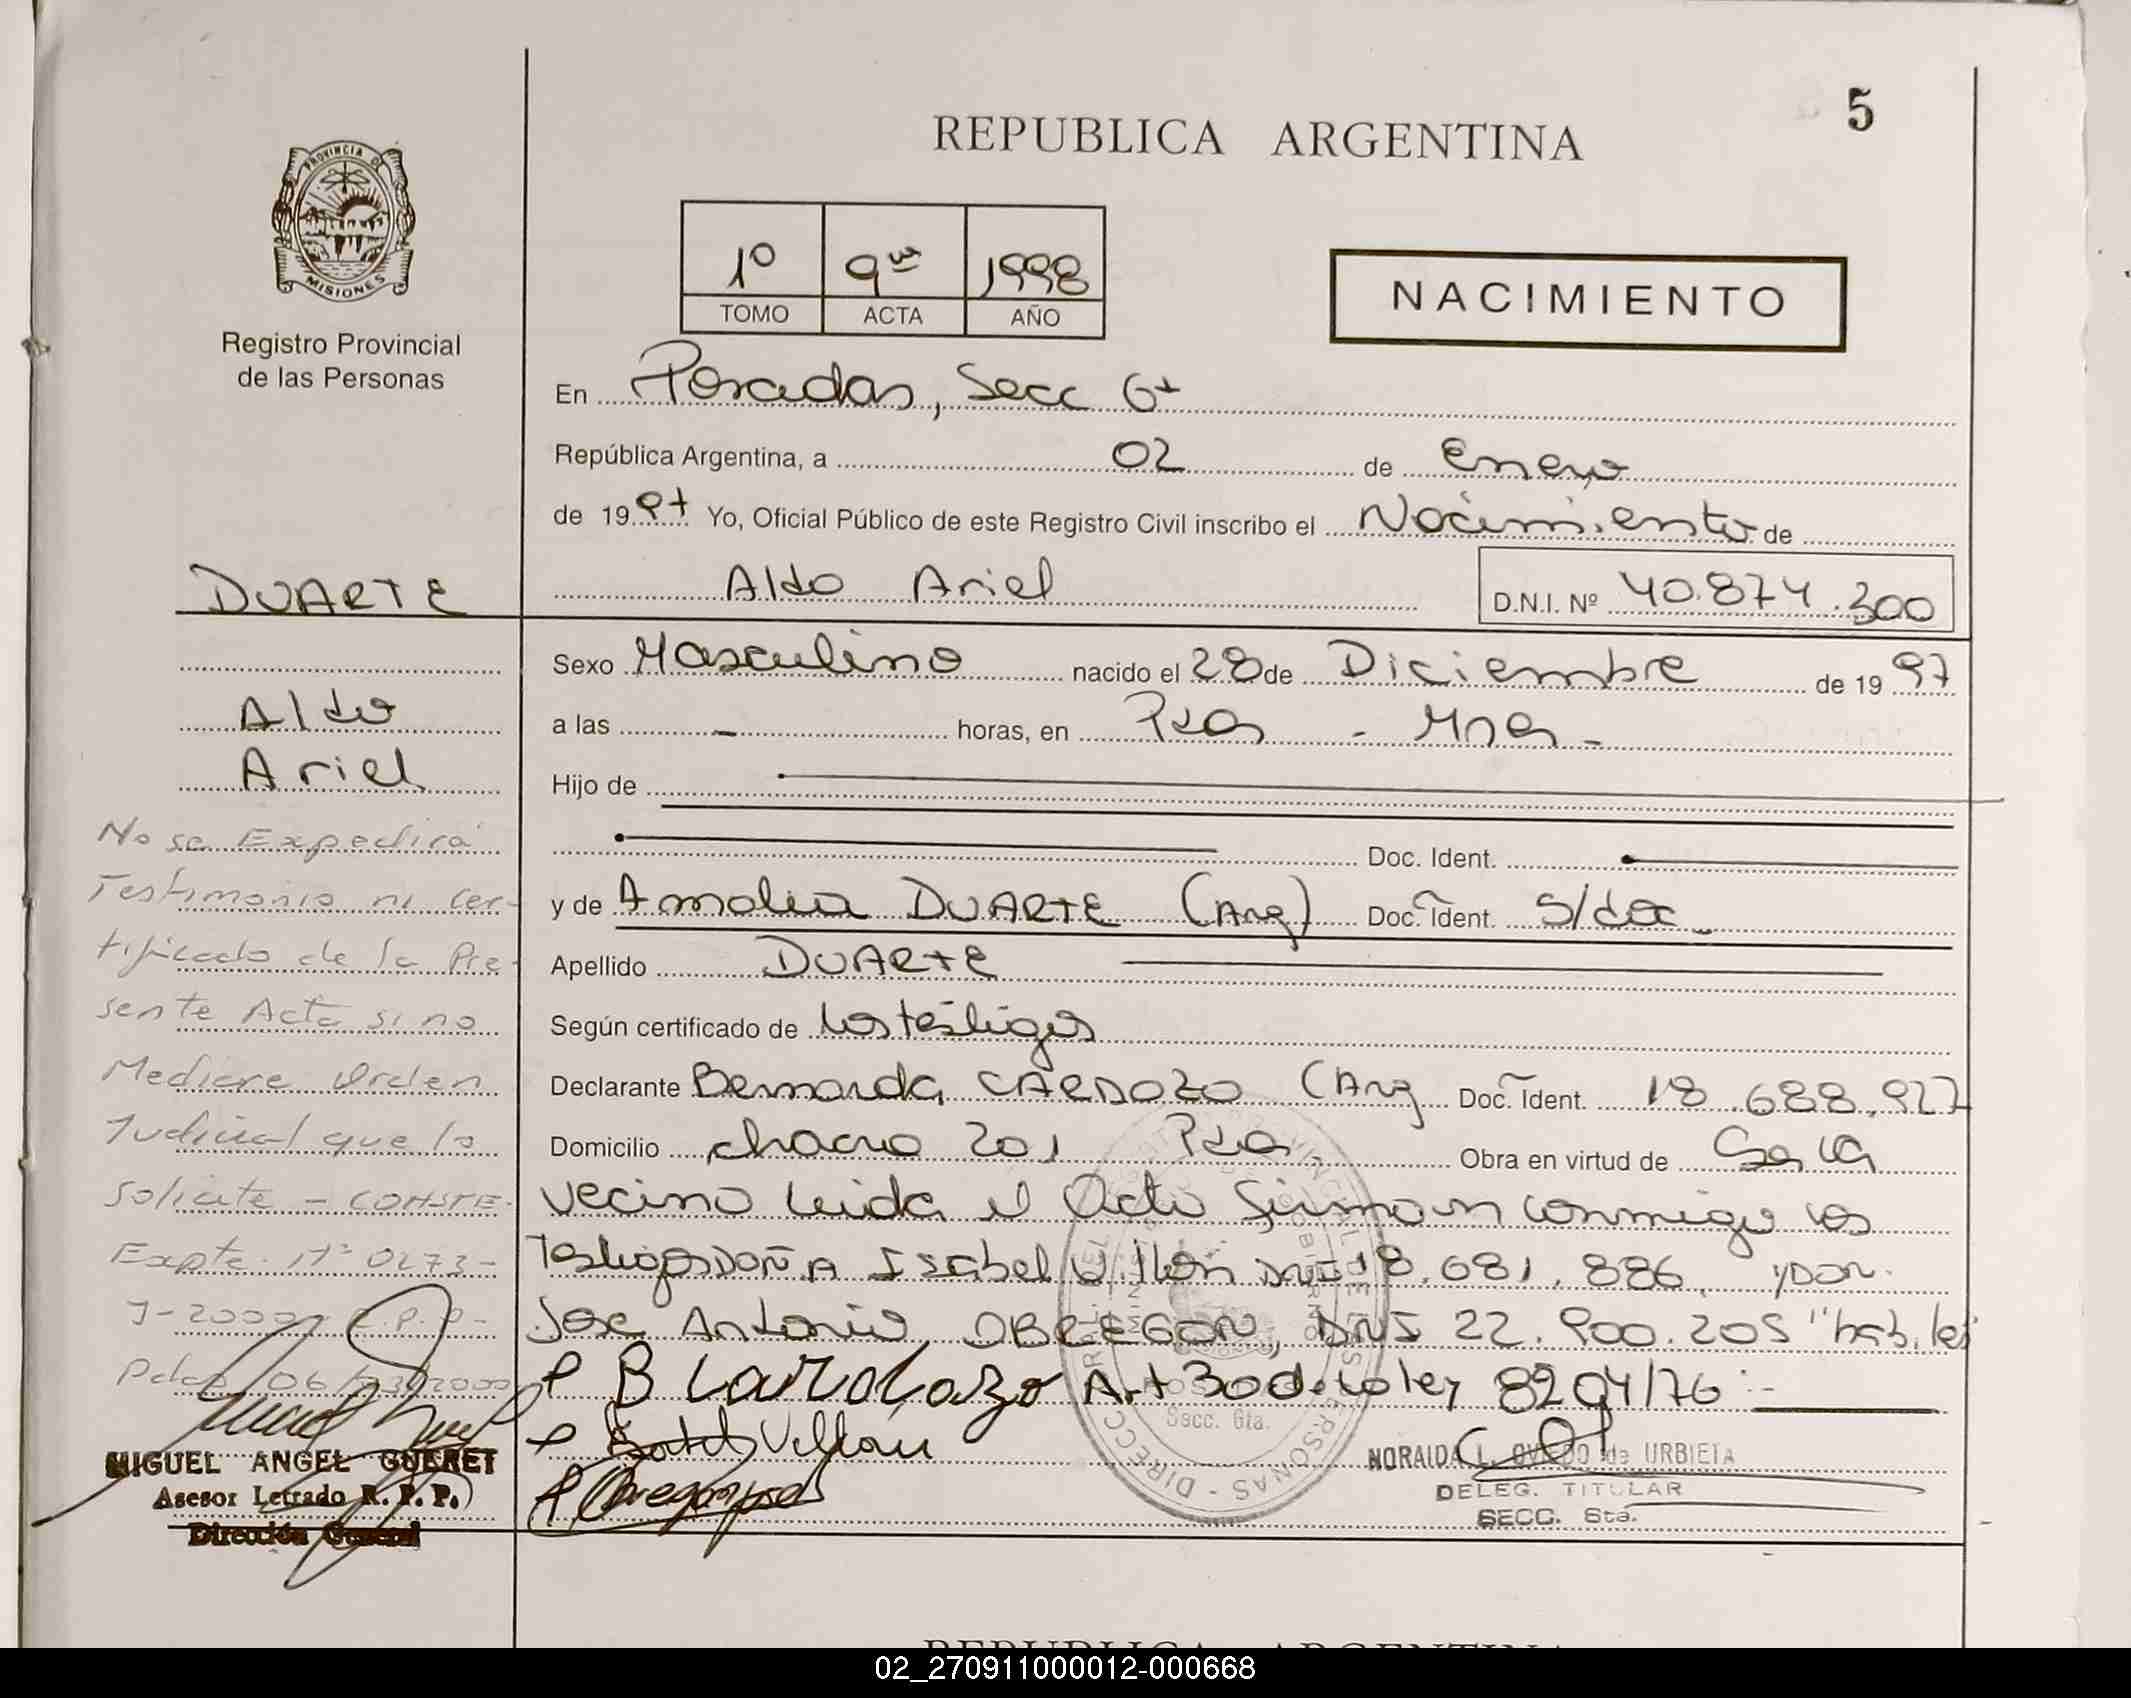 5
REPUBLICA ARGENTINA
PROVINCIA D
MISIONES
Registro Provincial
de las Personas
1º 9 1998
TOMO ACTA AÑO
NACIMIENTO
En Posadas, Secc 6ta
República Argentina, a 02 de Enero
de 19 Yo, Oficial Público de este Registro Civil inscribo el Nacimiento de
Aldo Ariel
D.N.I. Nº 40.874.300
Sexo Masculino nacido el 28 de Diciembre de 1997
a las - horas, en Pdas - Mnes -
Hijo de
Doc. Ident.
y de Amalia DUARTE (Arg) Doc. Ident. S/doc
Apellido DUARTE
Según certificado de los testigos
Declarante Bernarda CARDOZO (Arg Doc. Ident. 18.688.927
Domicilio chacra 201 Pdas. Obra en virtud de
vecino leida el Acta firman conmigo los
Testigos DOÑA Isabel DNI 18.681.886 y DON
Jose Antonio OBREGON, DNI 22.900.205 "habiles"
Art 30 de la ley 8204/76 :-
NORAIDA L. OVIEDO de URBIETA
DELEG. TITULAR
SECC. 6ta.
Secc. 6ta.
DUARTE
Aldo
Ariel
No se Expedira
Testimonio ni cer-
tificado de la Pre-
sente Acta si no
Mediare Orden
Judicial que lo
solicite - CONSTE-
Expte. Nº 0273-
J-2000 R.P.P.-
Pdas 06/03/2000
MIGUEL ANGEL GUERET
Asesor Letrado R. P. P.
Dirección General
REPUBLICA ARGENTINA
02_270911000012-000668